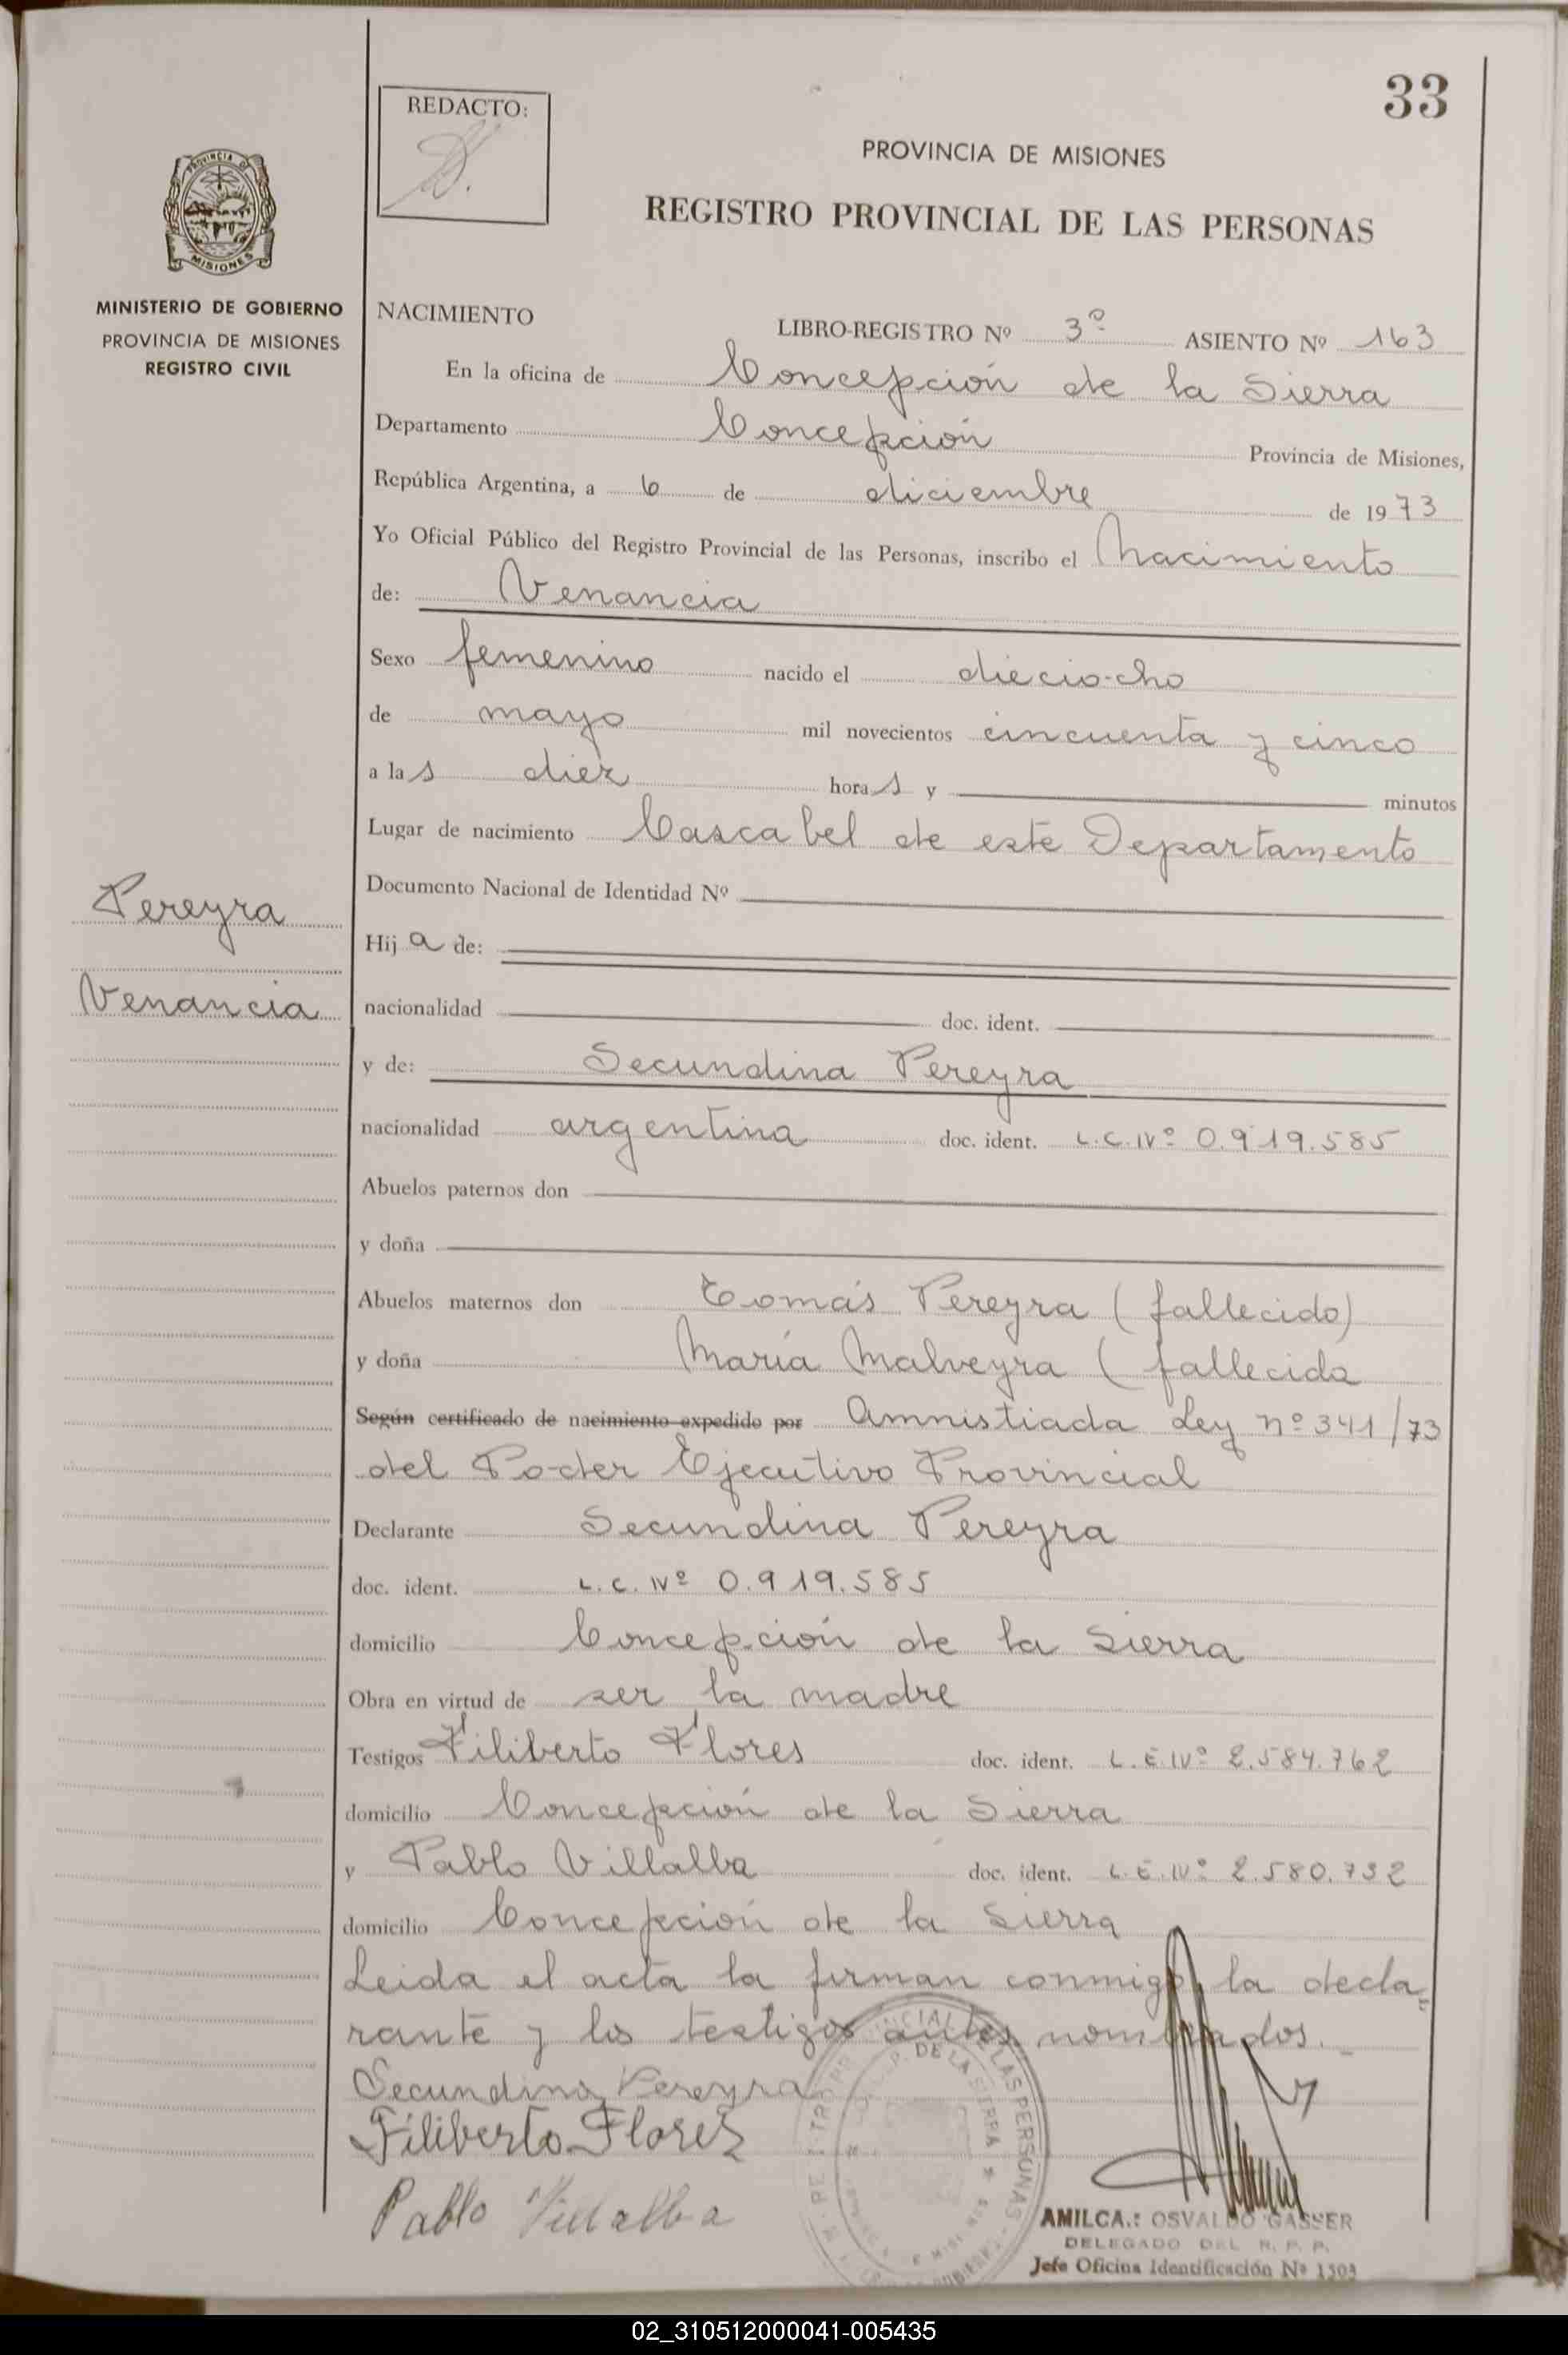 33
REDACTO:
PROVINCIA DE MISIONES
REGISTRO PROVINCIAL DE LAS PERSONAS
MISIONES
MINISTERIO DE GOBIERNO
PROVINCIA DE MISIONES
REGISTRO CIVIL
NACIMIENTO
LIBRO-REGISTRO Nº 3º ASIENTO Nº 163
En la oficina de Concepción de la Sierra
Departamento Concepción Provincia de Misiones,
República Argentina, a 6 de diciembre de 1973
Yo Oficial Público del Registro Provincial de las Personas, inscribo el Nacimiento
de: Venancia
Sexo femenino nacido el dieciocho
de mayo mil novecientos cincuenta y cinco
a las diez horas y minutos
Lugar de nacimiento Cascabel de este Departamento
Documento Nacional de Identidad Nº
Pereyra
Venancia
Hija de:
nacionalidad doc. ident.
y de: Secundina Pereyra
nacionalidad argentina doc. ident. L.C.Nº 0.919.585
Abuelos paternos don
y doña
Abuelos maternos don Tomás Pereyra (fallecido)
y doña María Malveyra (fallecida
Según certificado de nacimiento expedido por Amnistiada Ley nº 341/73
del Poder Ejecutivo Provincial
Declarante Secundina Pereyra
doc. ident. L.C. Nº 0.919.585
domicilio Concepción de la Sierra
Obra en virtud de ser la madre
Testigos Filiberto Flores doc. ident. L.E.Nº 2.584.762
domicilio Concepción de la Sierra
y Pablo Villalba doc. ident. L.E.Nº 2.580.732
domicilio Concepción de la Sierra
Leida el acta la firman conmigo la decla=
rante y los testigos antes nombrados.
Secundina Pereyra
Filiberto Flores
Pablo Villalba
DE LAS PERSONAS
DE LA SIERRA
AMILCA.: OSVALDO GASSER
DELEGADO DEL R. P. P.
Jefe Oficina Identificación Nº 1303
02_310512000041-005435